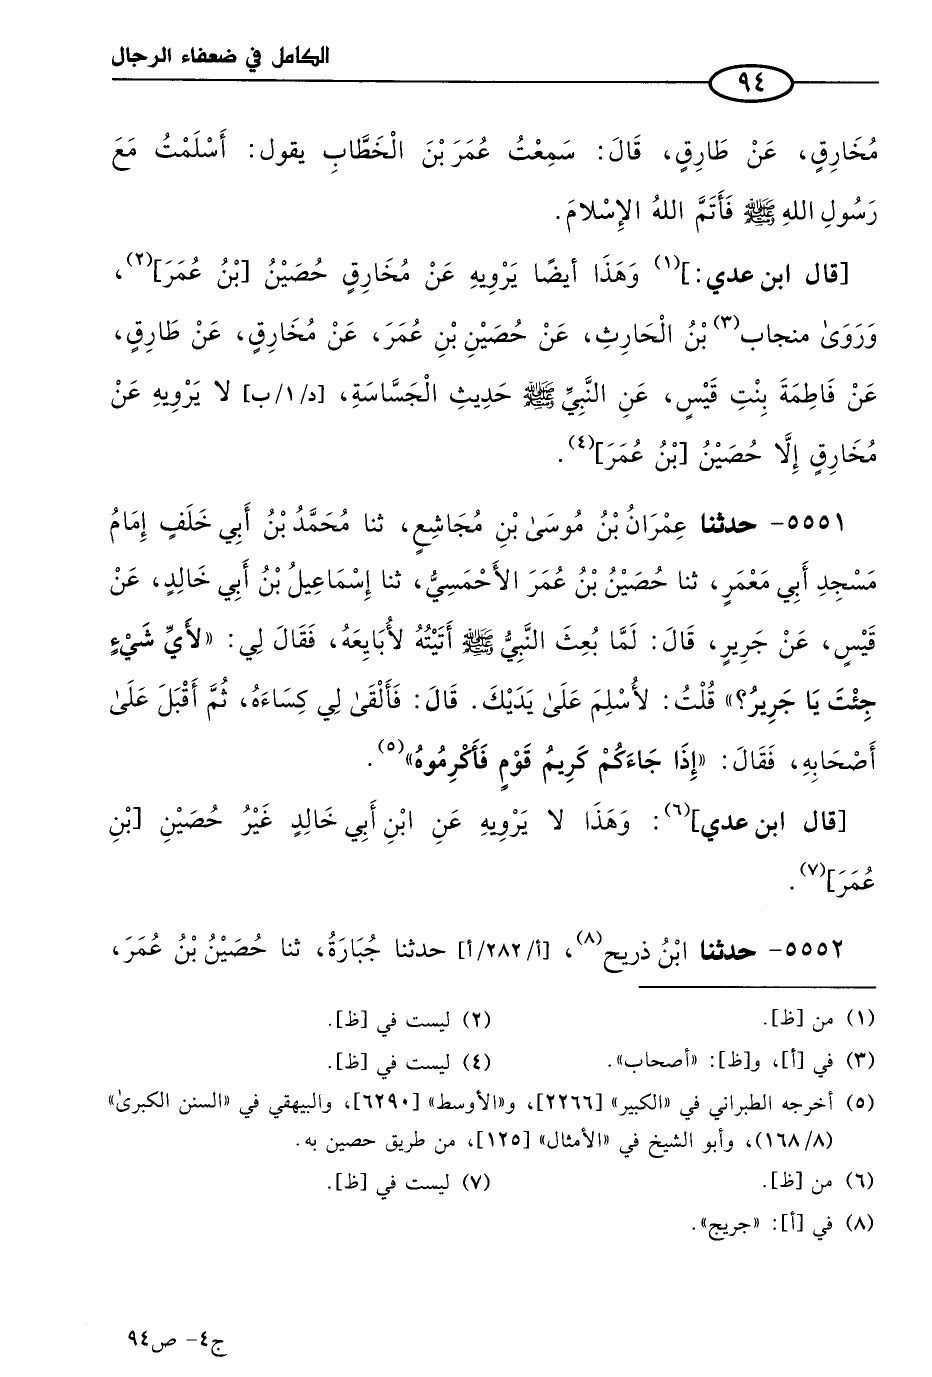 الكامل في ضعفاء الرجال
٩٤
مُخَارِقٍ، عَنْ طَارِقٍ، قَالَ: سَمِعْتُ عُمَرَ بْنَ الْخَطَّابِ يقول: أَسْلَمْتُ مَعَ
رَسُولِ اللهِ ﷺ فَأَتَمَّ اللهُ الإِسْلامَ.
[قال ابن عدي:](١) وَهَذَا أيضًا يَرْوِيهِ عَنْ مُخَارِقٍ حُصَيْنُ [بْنُ عُمَرَ](٢)،
وَرَوَىٰ منجاب(٣) بْنُ الْحَارِثِ، عَنْ حُصَيْنِ بْنِ عُمَرَ، عَنْ مُخَارِقٍ، عَنْ طَارِقٍ،
عَنْ فَاطِمَةَ بِنْتِ قَيْسٍ، عَنِ النَّبِيِّ ﷺ حَدِيثِ الْجَسَّاسَةِ، [د/١/ب] لا يَرْوِيهِ عَنْ
مُخَارِقٍ إِلَّا حُصَيْنُ [بْنُ عُمَرَ](٤).
٥٥٥١- حدثنا عِمْرَانُ بْنُ مُوسَىٰ بْنِ مُجَاشِعٍ، ثنا مُحَمَّدُ بْنُ أَبِي خَلَفٍ إِمَامُ
مَسْجِدِ أَبِي مَعْمَرٍ، ثنا حُصَيْنُ بْنُ عُمَرَ الأَحْمَسِيُّ، ثنا إِسْمَاعِيلُ بْنُ أَبِي خَالِدٍ، عَنْ
قَيْسٍ، عَنْ جَرِيرٍ، قَالَ: لَمَّا بُعِثَ النَّبِيُّ ﷺ أَتَيْتُهُ لأُبَايِعَهُ، فَقَالَ لِي: «لأَيِّ شَيْءٍ
جِئْتَ يَا جَرِيرُ؟» قُلْتُ: لأُسْلِمَ عَلَىٰ يَدَيْكَ. قَالَ: فَأَلْقَىٰ لِي كِسَاءَهُ، ثُمَّ أَقْبَلَ عَلَىٰ
أَصْحَابِهِ، فَقَالَ: «إِذَا جَاءَكُمْ كَرِيمُ قَوْمٍ فَأَكْرِمُوهُ»(٥).
[قال ابن عدي](٦): وَهَذَا لا يَرْوِيهِ عَنِ ابْنِ أَبِي خَالِدٍ غَيْرُ حُصَيْنِ [بْنِ
عُمَرَ](٧).
٥٥٥٢- حدثنا ابْنُ ذريح(٨)، [أ/٢٨٢/أ] حدثنا جُبَارَةُ، ثنا حُصَيْنُ بْنُ عُمَرَ،
(١) من [ظ]. (٢) ليست في [ظ].
(٣) في [أ]، و[ظ]: «أصحاب». (٤) ليست في [ظ].
(٥) أخرجه الطبراني في «الكبير» [٢٢٦٦]، و«الأوسط» [٦٢٩٠]، والبيهقي في «السنن الكبرىٰ»
(١٦٨/٨)، وأبو الشيخ في «الأمثال» [١٢٥]، من طريق حصين به.
(٦) من [ظ]. (٧) ليست في [ظ].
(٨) في [أ]: «جريج».
ج٤- ص٩٤